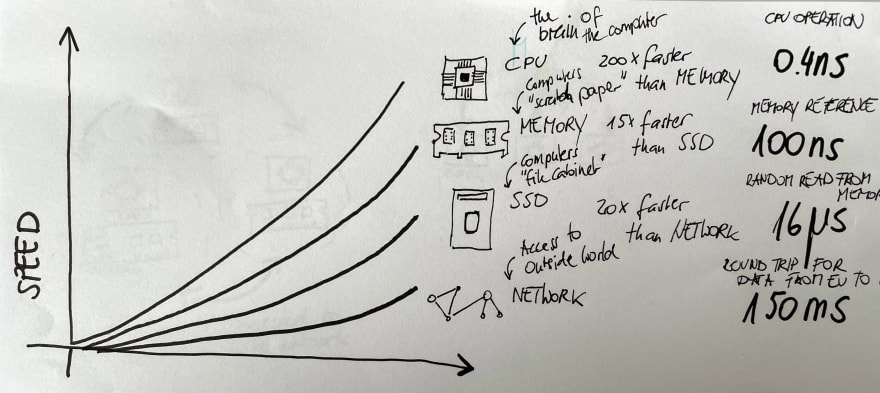 SPEED
the . of
brain the computer
CPU 200x faster
than MEMORY
computers
"scratch paper"
MEMORY 15x faster
than SSD
computers
"file cabinet"
SSD 20x faster
than NETWORK
Access to
outside world
NETWORK
CPU OPERATION
0.4ns
MEMORY REFERENCE
100ns
RANDOM READ FROM
MEMO
16µs
ROUND TRIP FOR
DATA FROM EU TO
150ms